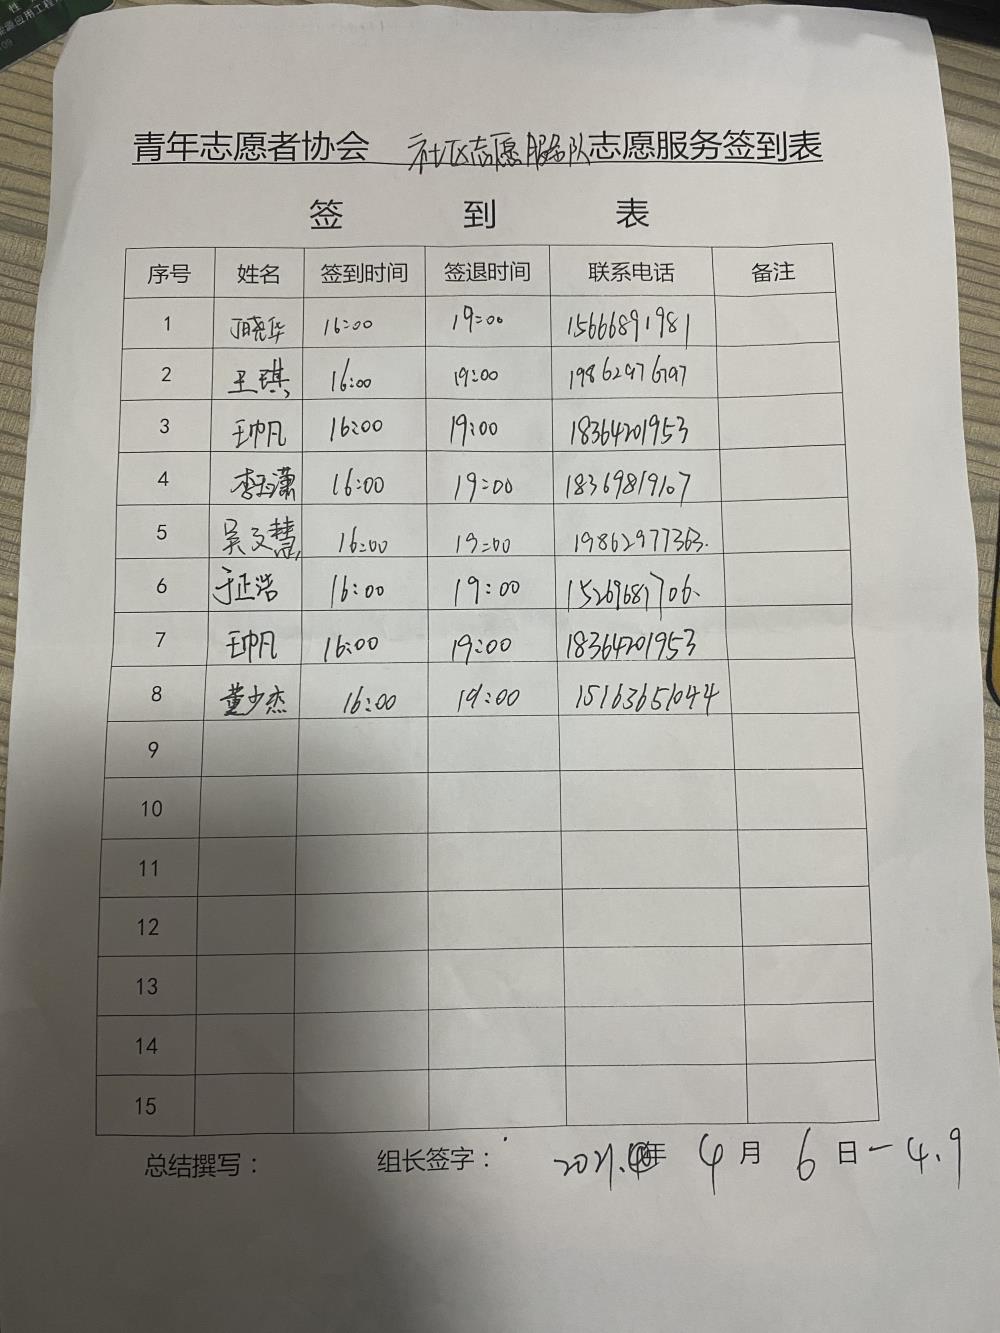 性
能源应用工程
09
青年志愿者协会 社区志愿服务队志愿服务签到表
签 到 表
序号 姓名 签到时间 签退时间 联系电话 备注
1 丁晓华 16:00 19:00 15666891981
2 王琪 16:00 19:00 19862976797
3 王帅凡 16:00 19:00 18364201953
4 李玉潇 16:00 19:00 18369819107
5 吴文慧 16:00 19:00 19862977363.
6 于正浩 16:00 19:00 15269687706.
7 王帅凡 16:00 19:00 18364201953
8 董少杰 16:00 19:00 15163651044
9
10
11
12
13
14
15
总结撰写： 组长签字： 2021.年 4 月 6 日-4.9